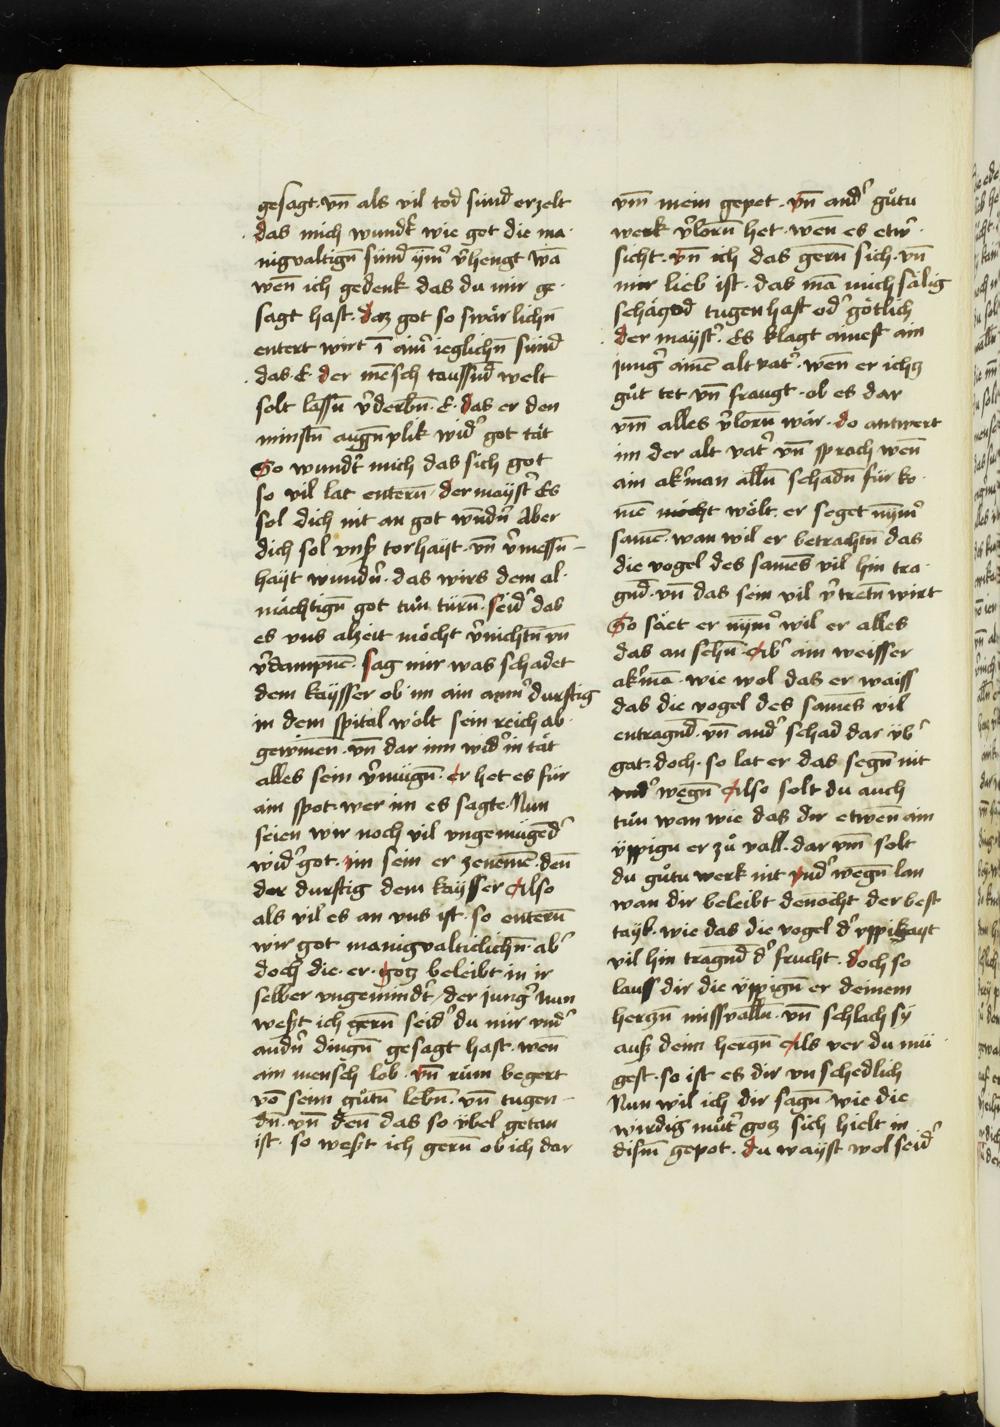 gesagt · vn̄ als vil tod sünd erzelt
das mich wundt̾ wie got die ma-
nigvaltign̄ sünd ym̄̾ v̾hengt wā
wen̄ ich gedenk das du mir ge-
sagt hast · daz got so swärlichn̄
entert wirt ī aim̾ ieglichn̄ sünd
das · E · der mēsch taussūd welt
solt lassn̄ v̾derbn̄ · E · das er den
minstn̄ augn̄plik wid̾ got tät
So wundt̾ mich das sich got
so vil lat entern̄ · der mayst̾ Es
sol dich nit an got wn̄dn̾ Aber
dich sol vnsß torhayt · vn̄ v̾messn̄-
hayt wundn̾ · das wirs dem al-
mächtign̄ got tun̊ türn̄ · seid̾ das
es vns alzeit möcht v̾nichtn̄ vn̄
v̾dampnē · sag mir was schadet
dem kaysser ob im ain arm̾ durftig
in dem spital wölt sein reich ab-
gewinen̄ · vn̄ dar inn wid̾ in tät
alles sein v̾mügn̄ · er het es für
ain spot · wer im es sagte · Nun
seien wir noch vil vngemügēd̾
wid̾ got · im sein er zenemē · den̄
der durftig dem kaysser Also
als vil es an vns ist · so entern̄
wir got manigvalticlichn̄ · ab̾
doch die · er · gotz beleibt in ir
selber vngemindt̾ / der jung̾ Nun
weßt ich gern̄ seid̾ du mir vnd̾
andn̾ dingn̄ gesagt hast · wen̄
ain mensch lob · vn̄ rům begert
vō seim gůtn̄ lebn̄ · vn̄ tugen-
dn̄ · vn̄ den̄ das so v̈bel getan
ist · so weßt ich gern̄ ob ich dar
vm̄ mein gepet · vn̄ and̾ gůtu
werk v̾lorn̄ het · wen̄ es etw̾
sicht · vn̄ ich das gern̄ sich · vn̄
mir lieb ist · das mā mich sälig
schäczd tugenhaft od̾ götlich
der mayst̾ · Es klagt ainest ain
jung̾ ainē altvat̾ · wen̄ er ichtz
gůt tet vn̄ fraugt · ob es dar
vm̄ alles v̾lorn̄ wär · do antwert
im der alt vat̾ vn̄ sprach wen̄
ain ak̾man alln̄ schadn̄ für ko-
men möcht wölt · er seget nym̄̾
samē · wan wil er betrachtn̄ das
die vogel des samēs vil hin tra-
gnd̄ · vn̄ das sein vil v̾tretn̄ wirt
So säet er nym̄̾ wil er alles
das an sehn̄ · Ab̾ ain weisser
ak̾mā · wie wol das er waiss
das die vogel des samēs vil
entragnd̄ · vn̄ and̾ schad dar v̈b̾
gat · doch · so lat er das segn̄ nit
vnd̾ wegn̄ Also solt du auch
tůn wan wie das dir etwen̄ ain
v̈ppigu er zů vall · dar vm̄ solt
du gůtu werk nit vnd̾ wegn̄ lan
wan dir beleibt denocht der best
tayl · wie das die vogel d̾ vppikayt
vil hin tragnd̄ d̾ frucht · doch so
lauss dir die v̈ppign̄ er deinem
hertzn̄ missvalln̄ · vn̄ schlach sy
auß dem hertzn̄ Als ver du mü-
gest · so ist es dir vnschedlich
Nun wil ich dir sagn̄ · wie die
wirdig můt̾ gotz sich hielt in
dism̄ gepot · du wayst wol seid̾